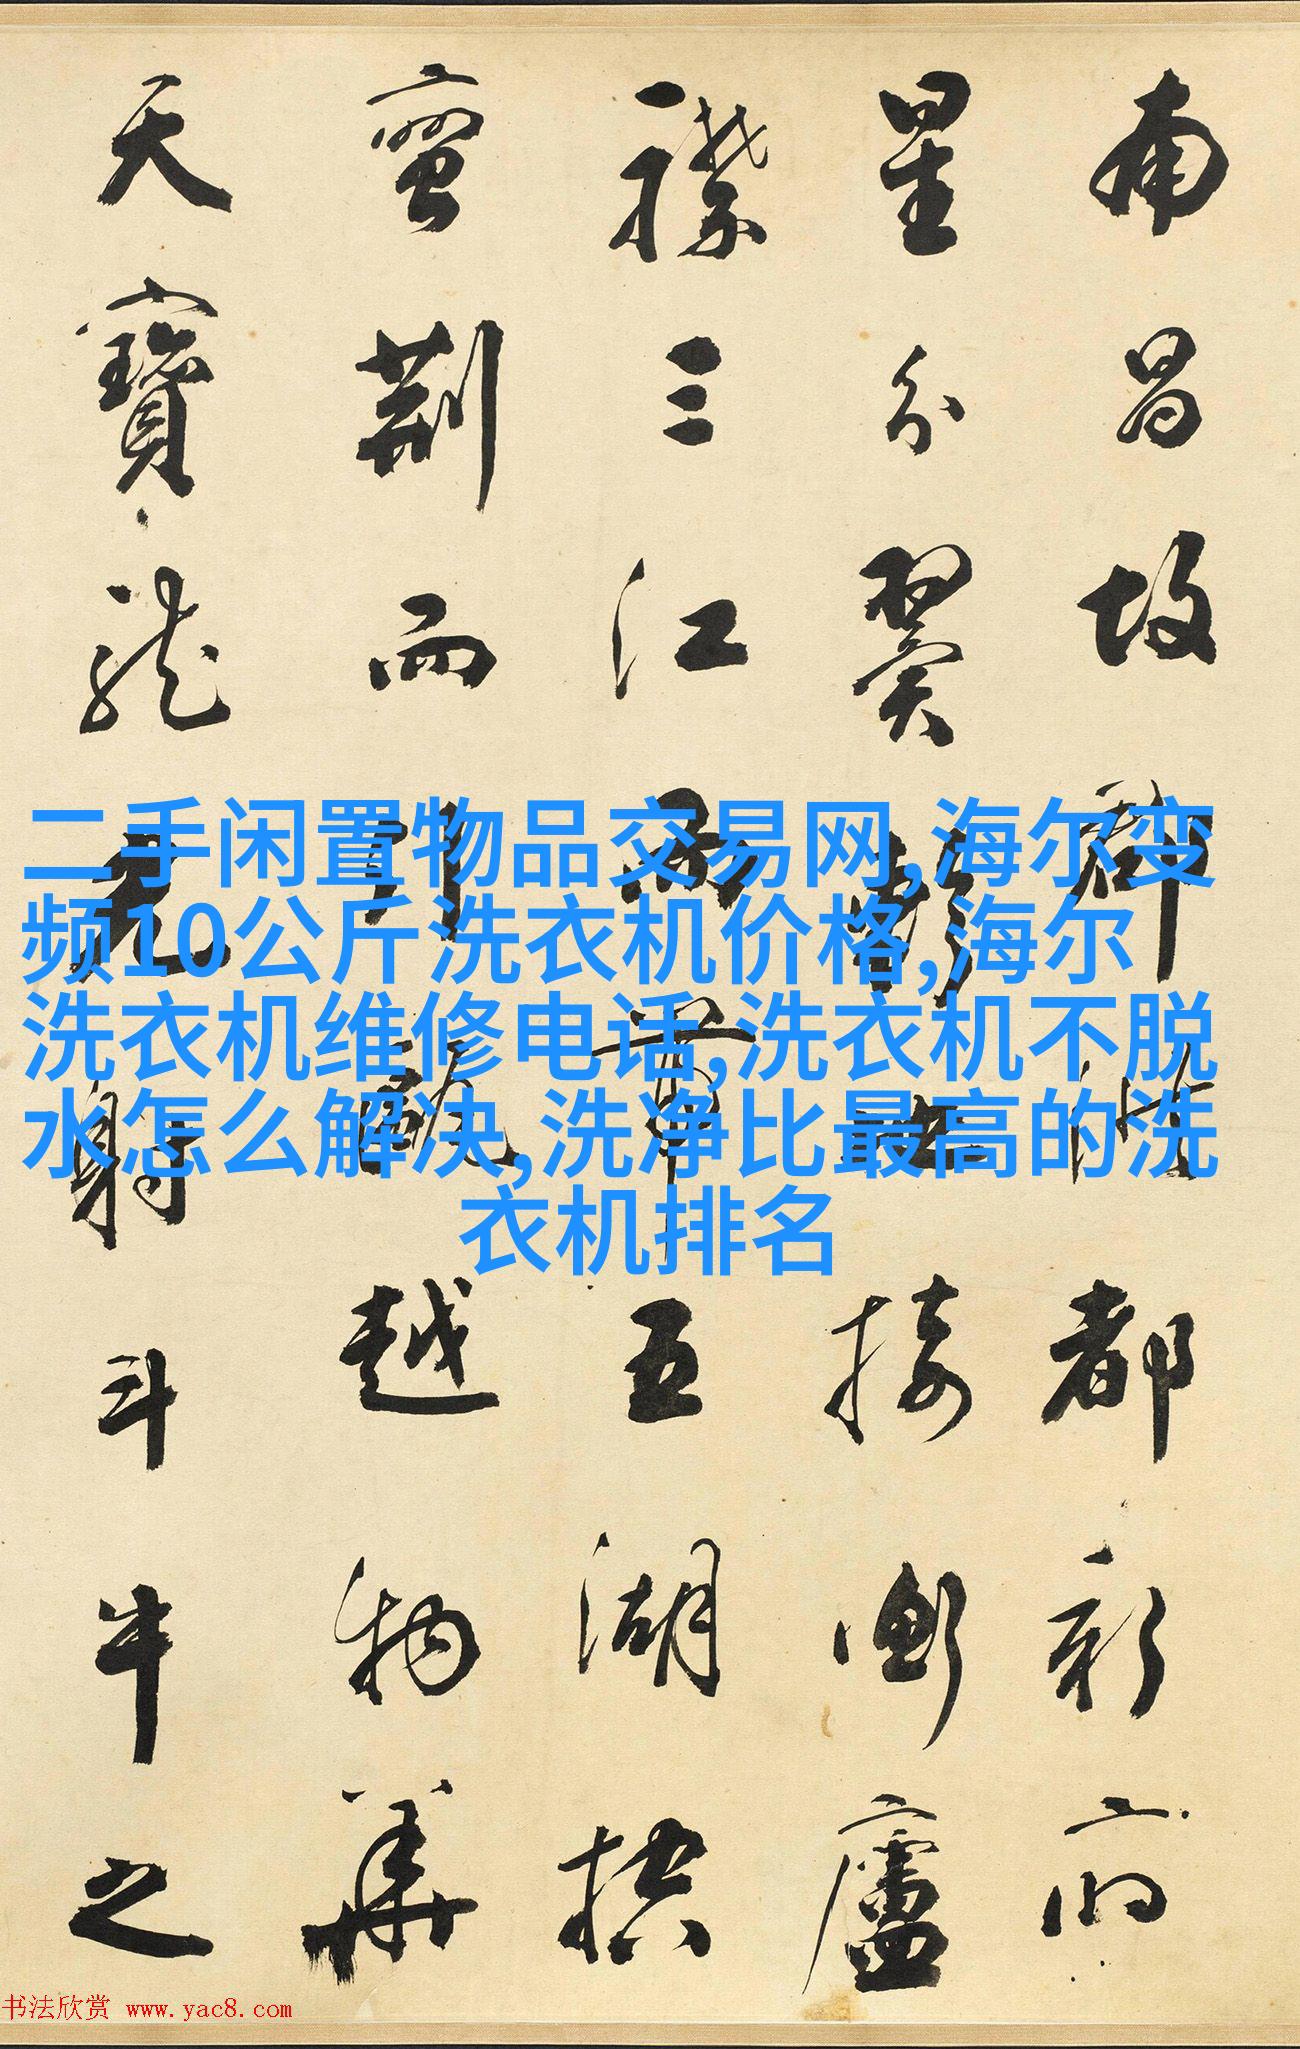 南昌故郡洪都新府
星分翼軫地接衡廬
襟三江而帶五湖控
蠻荊而引甌越物華
天寶龍光射斗牛之
二手闲置物品交易网,海尔变
频10公斤洗衣机价格,海尔
洗衣机维修电话,洗衣机不脱
水怎么解决,洗净比最高的洗
衣机排名
书法欣赏 www.yac8.com